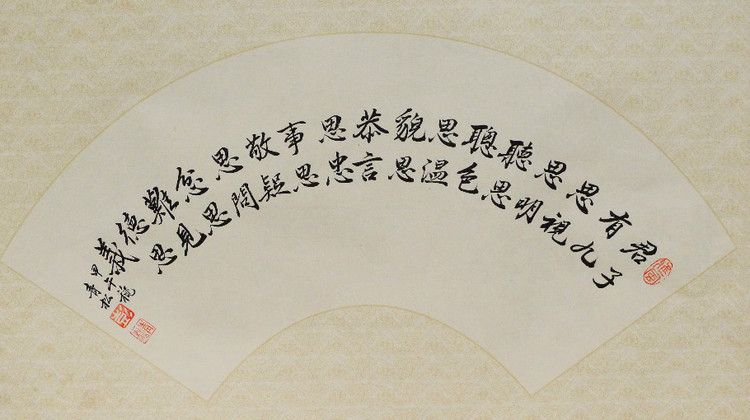 君子
有九
思視
思明
聽思
聰色
思温
貌思
恭言
思忠
事思
敬疑
思問
忿思
難見
德思
義
甲午
青松